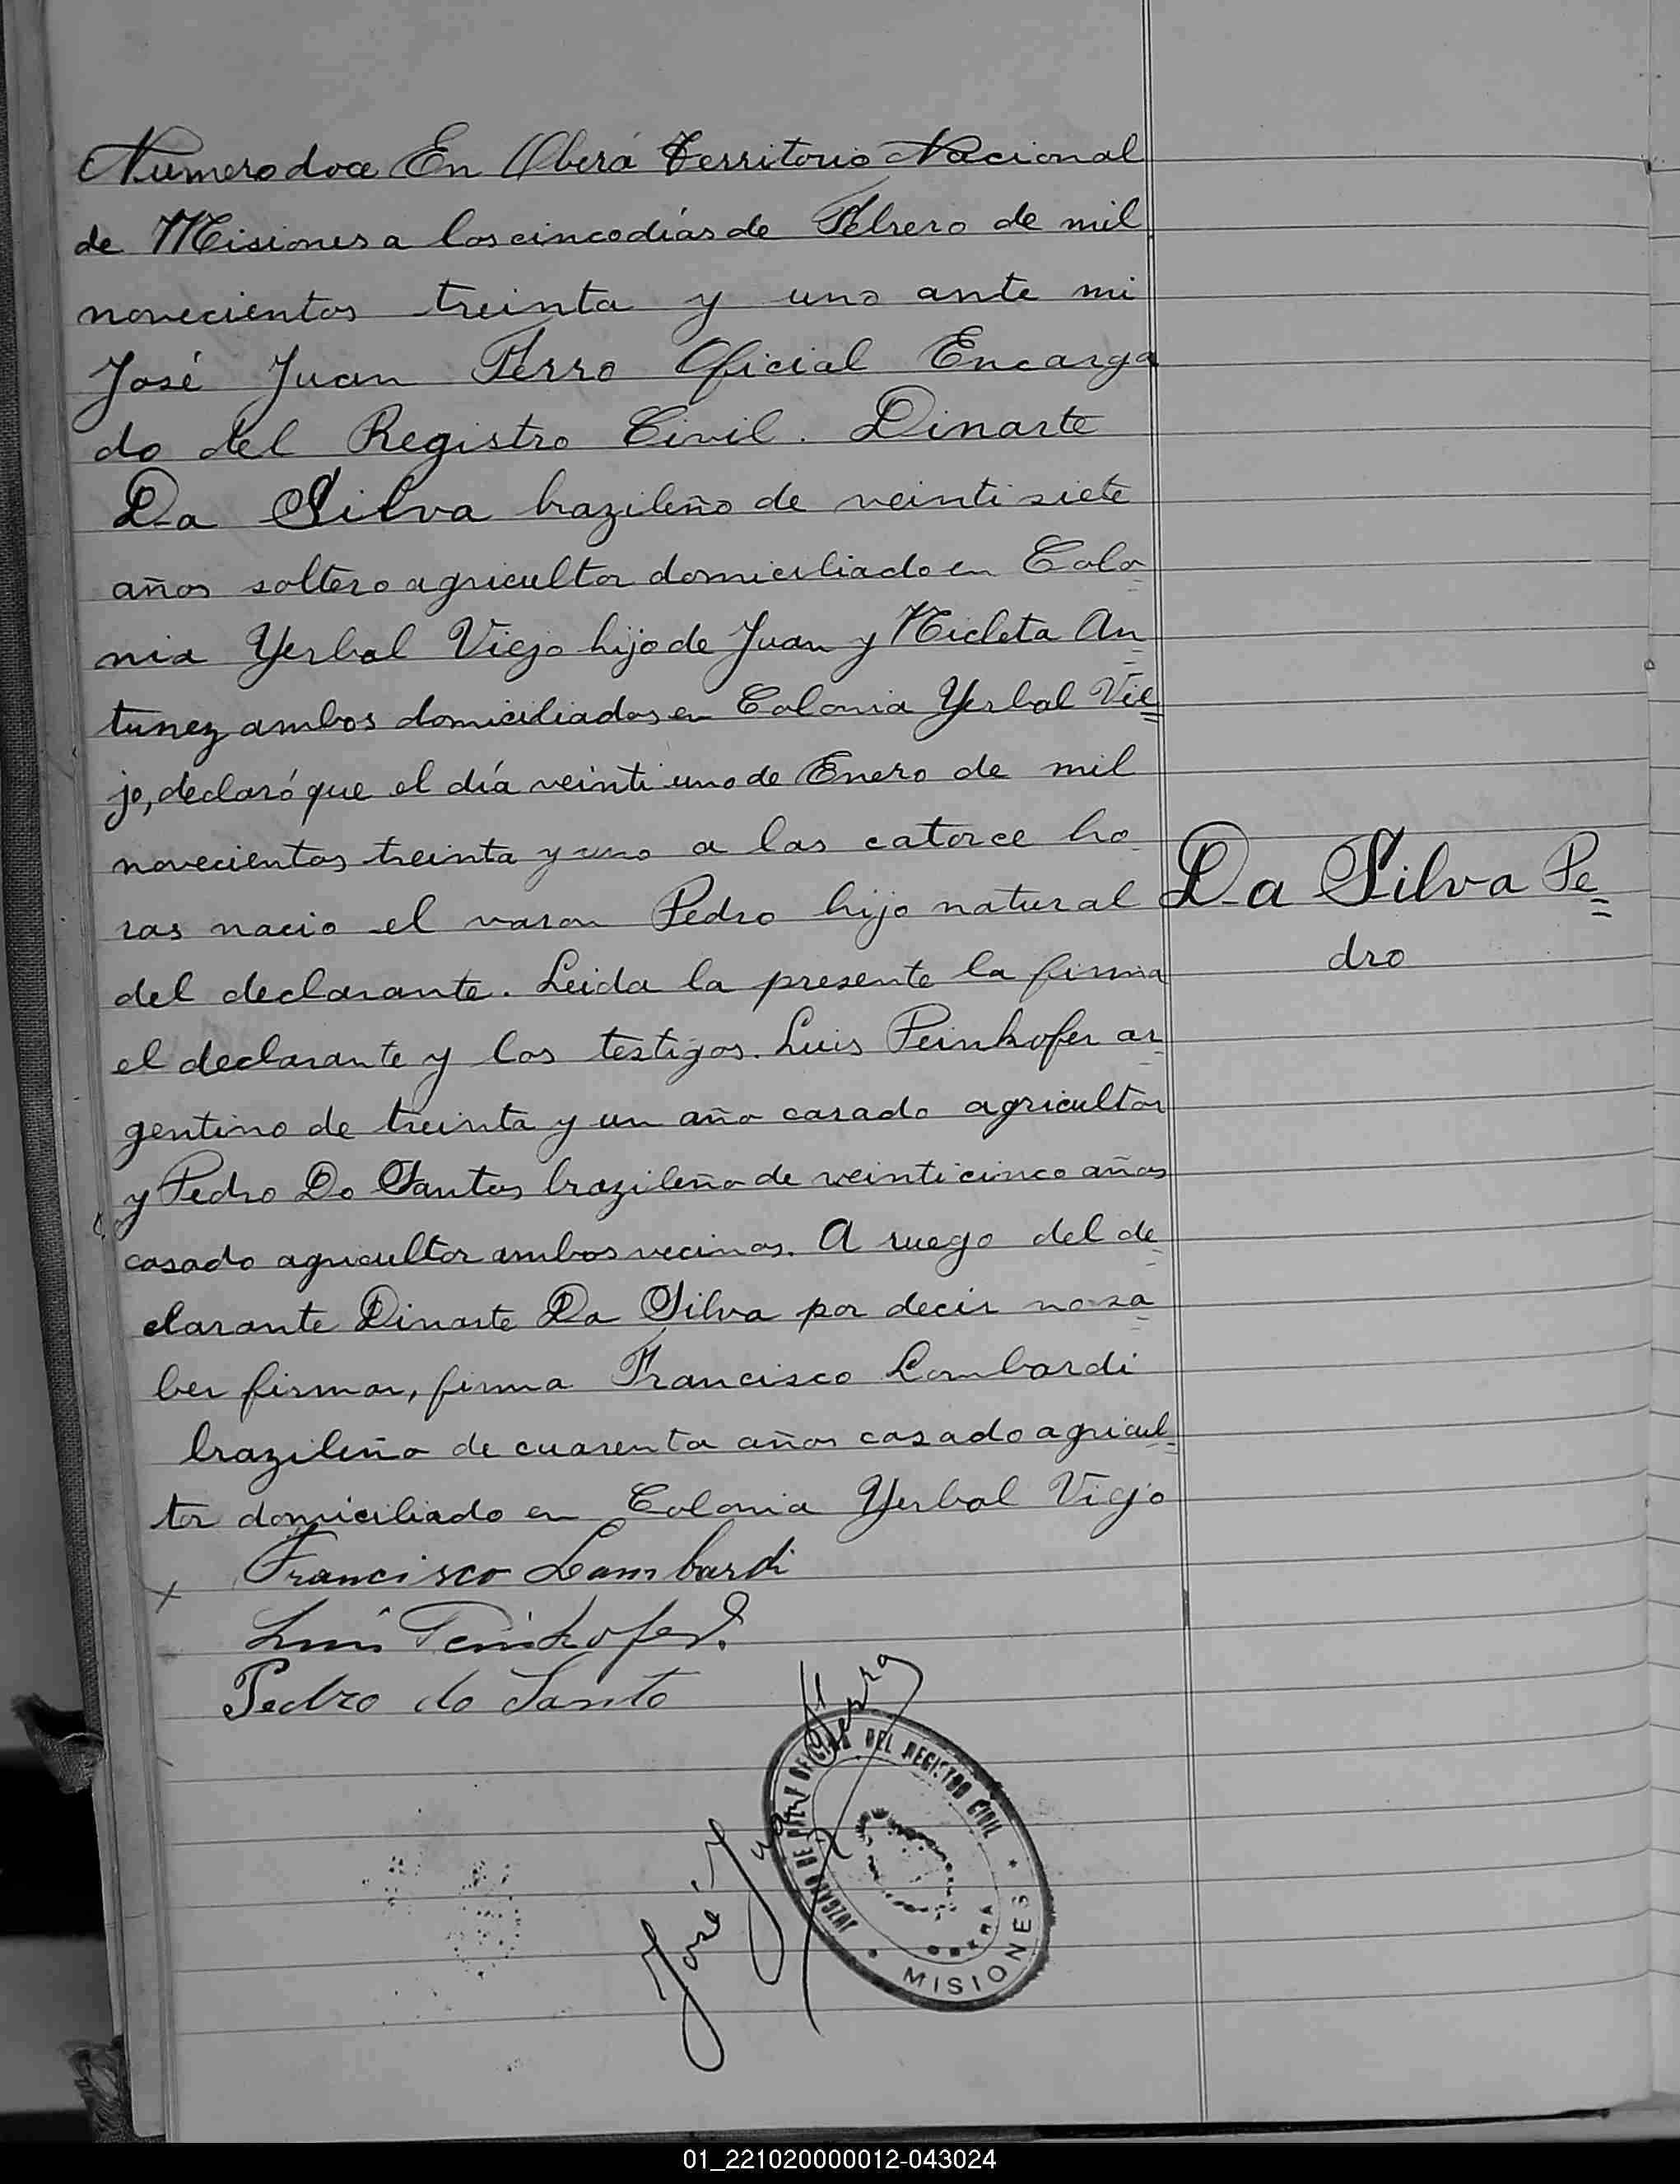 Numero doce En Oberá Territorio Nacional
de Misiones a los cinco días de Febrero de mil
novecientos treinta y uno ante mi
José Juan Ferro Oficial Encarga
do del Registro Civil. Dinarte
Da Silva brazileño de veinti siete
años soltero agricultor domiciliado en Colo
nia Yerbal Viejo hijo de Juan y Nicleta An
tunez ambos domiciliados en Colonia Yerbal Vie
jo, declaró que el día veinti uno de Enero de mil
novecientos treinta y uno a las catorce ho
ras nacio el varon Pedro hijo natural
del declarante. Leida la presente la firma
el declarante y los testigos. Luis Peinkofer ar
gentino de treinta y un año casado agricultor
y Pedro Do Santos brazileño de veinti cinco años
casado agricultor ambos vecinos. A ruego del de
clarante Dinarte Da Silva por decir no sa
ber firmar, firma Francisco Lombardi
brazileño de cuarenta años casado agricul
tor domiciliado en Colonia Yerbal Viejo
Da Silva Pe
dro
Francisco Lambardi
Luis Peinkofer
Pedro do Santo
José Juan Ferro
JUZGADO DE PAZ Y OFICINA DEL REGISTRO CIVIL
OBERÁ
* MISIONES *
01_221020000012-043024